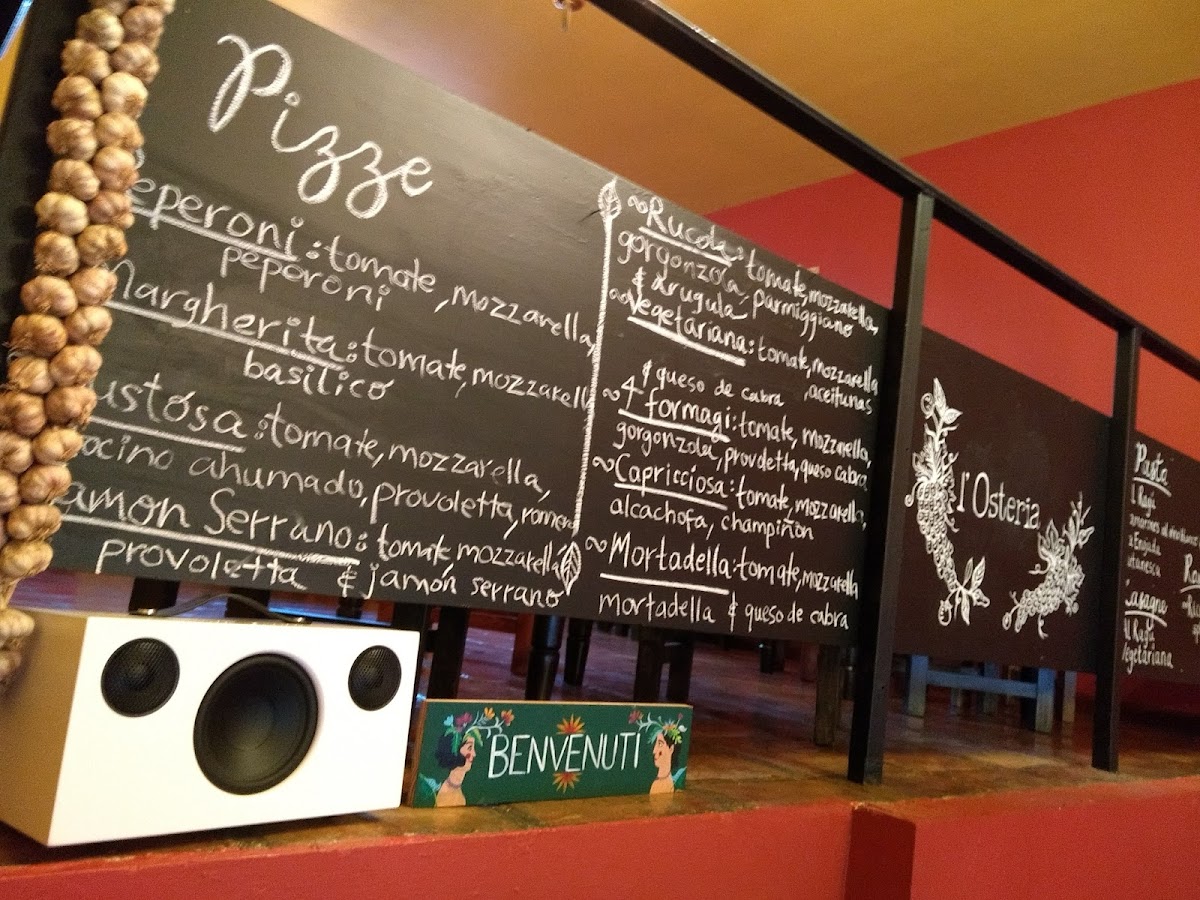 Pizze
Peperoni: tomate, mozzarella,
peporoni
Margherita: tomate, mozzarella
basilico
ustosa: tomate, mozzarella,
tocino ahumado, provoletta, romero
Jamon Serrano: tomate, mozzarella
provoletta & jamón serrano
~Rucola: tomate, mozzarella,
gorgonzola, parmiggiano
& arugula
~Vegetariana: tomate, mozzarella
& queso de cabra, aceitunas
~4 formagi: tomate, mozzarella,
gorgonzola, provoletta, queso cabra
~Capricciosa: tomate, mozzarella,
alcachofa, champiñon
~Mortadella: tomate, mozzarella
mortadella & queso de cabra
l'Osteria
Pasta
l Ragú
Lasagne
al Ragú
Vegetariana
BENVENUTI